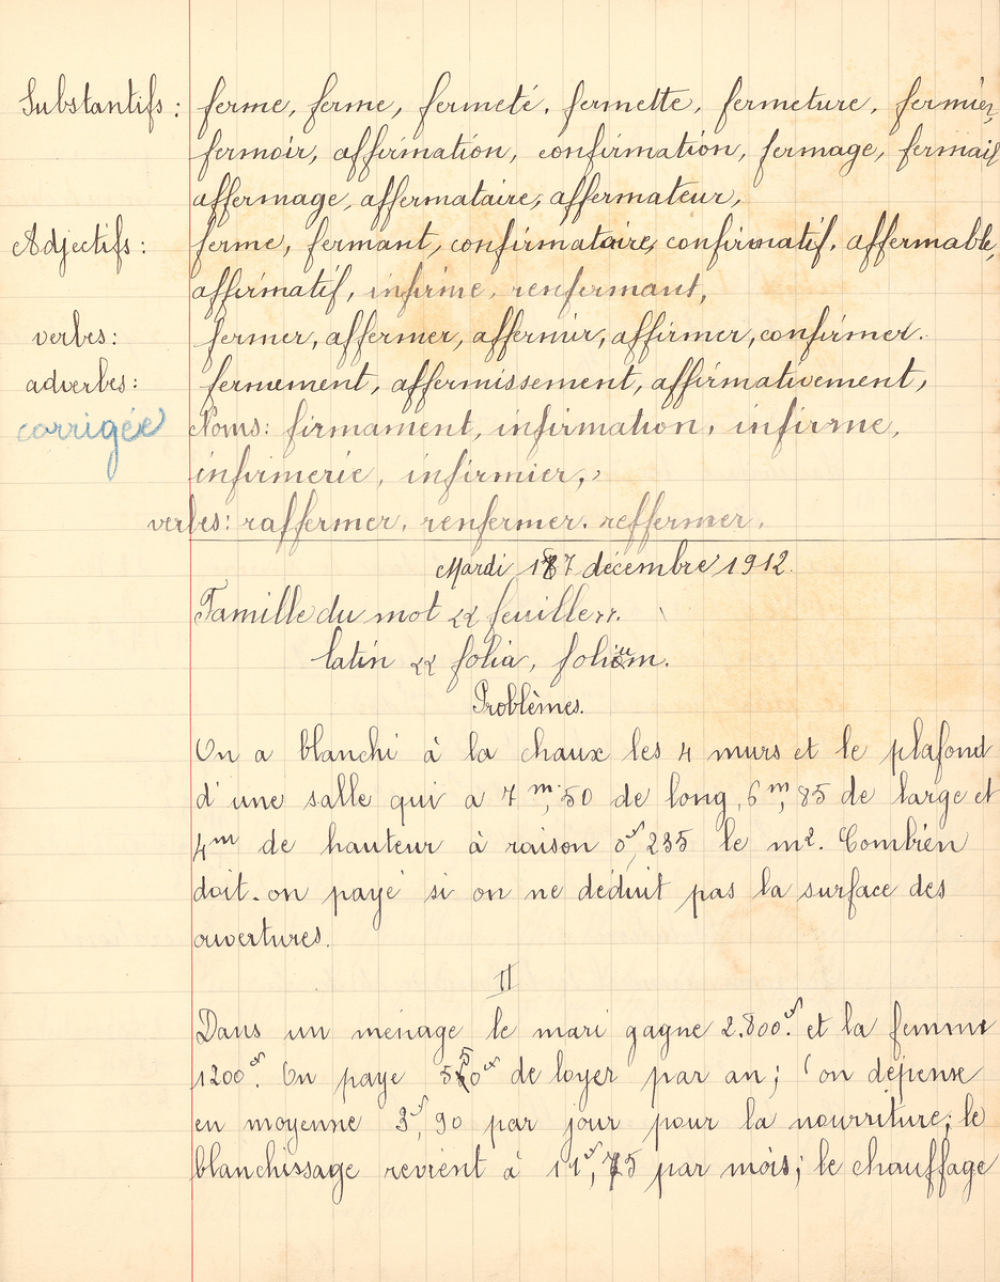 Substantifs : ferme, ferme, fermeté, fermette, fermeture, fermier,
fermoir, affirmation, confirmation, fermage, fermail
affermage, affermataire, affermateur,
Adjectifs : ferme, fermant, confirmataire, confirmatif, affermable,
affirmatif, infirme, renfermant,
verbes : fermer, affermer, affermir, affirmer, confirmer.
adverbes : fermement, affermissement, affirmativement,
corrigée Noms : firmament, infirmation, infirme,
infirmerie, infirmier,,
verbes : raffermer, renfermer. reffermer.
Mardi 17 décembre 1912.
Famille du mot « feuille ».
latin « folia, folium.
Problèmes.
On a blanchi à la chaux les 4 murs et le plafond
d'une salle qui a 7m,50 de long, 6m,85 de large et
4m de hauteur à raison 0f,235 le m2. Combien
doit-on payé si on ne déduit pas la surface des
ouvertures.
II
Dans un ménage le mari gagne 2.800f. et la femme
1200f. On paye 550f de loyer par an; on dépense
en moyenne 3f,90 par jour pour la nourriture; le
blanchissage revient à 11f,75 par mois; le chauffage